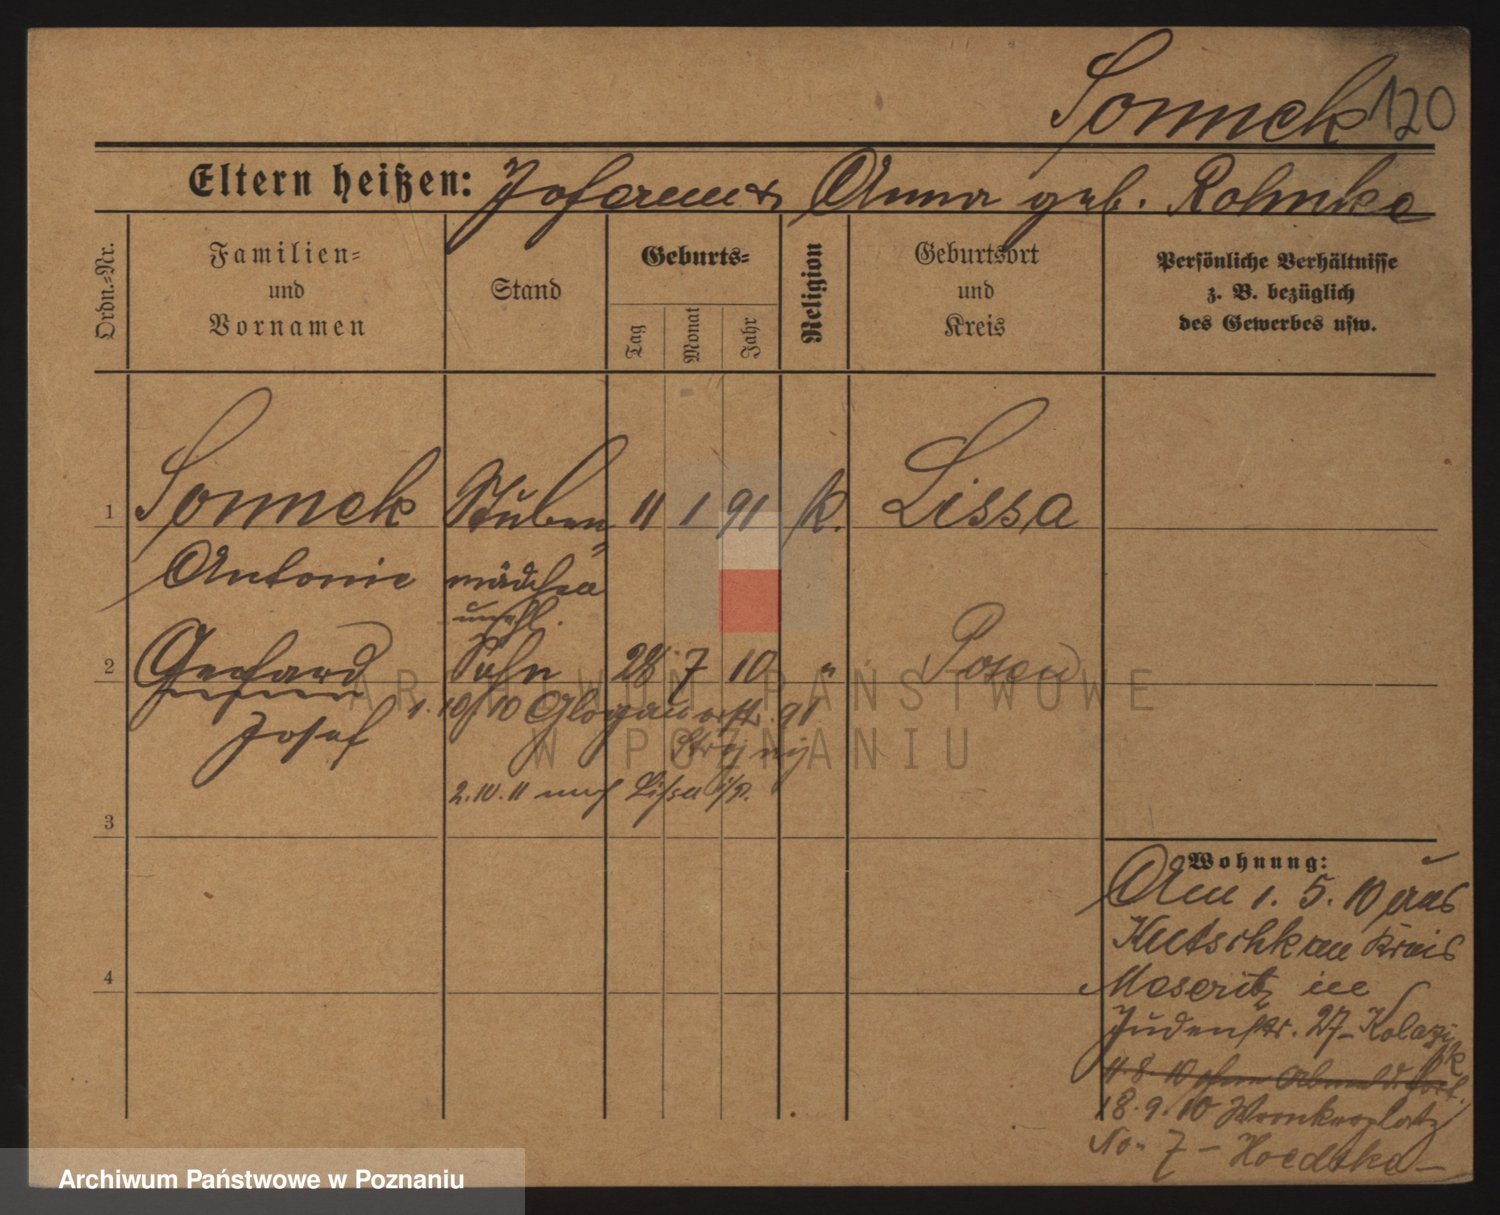 Sonnek 120
Eltern heißen: Johann & Anna geb. Rohnke
Ordn.-Nr.
Familien-
und
Vornamen
Stand
Geburts-
Tag
Monat
Jahr
Religion
Geburtsort
und
Kreis
Persönliche Verhältnisse
z. B. bezüglich
des Gewerbes usw.
1 Sonnek Stuben 11 1 91 k. Lissa
Antonie mädchen
unehl.
2 Gerhard Sohn 28 7 10 " Posen
1.10/10 Glogauerstr. 91
Josef
2.10.11 nach Lissa i/P.
3
Wohnung:
Am 1. 5. 10 aus
Kutschkau Kreis
4
Meseritz in
Judenstr. 27 - Kolazi
k
11.8.10 ohne Abmeld. fort.
18.9.10 Wronkerplatz
No. 7 - Hoedtke -
ARCHIWUM PAŃSTWOWE
W POZNANIU
Archiwum Państwowe w Poznaniu